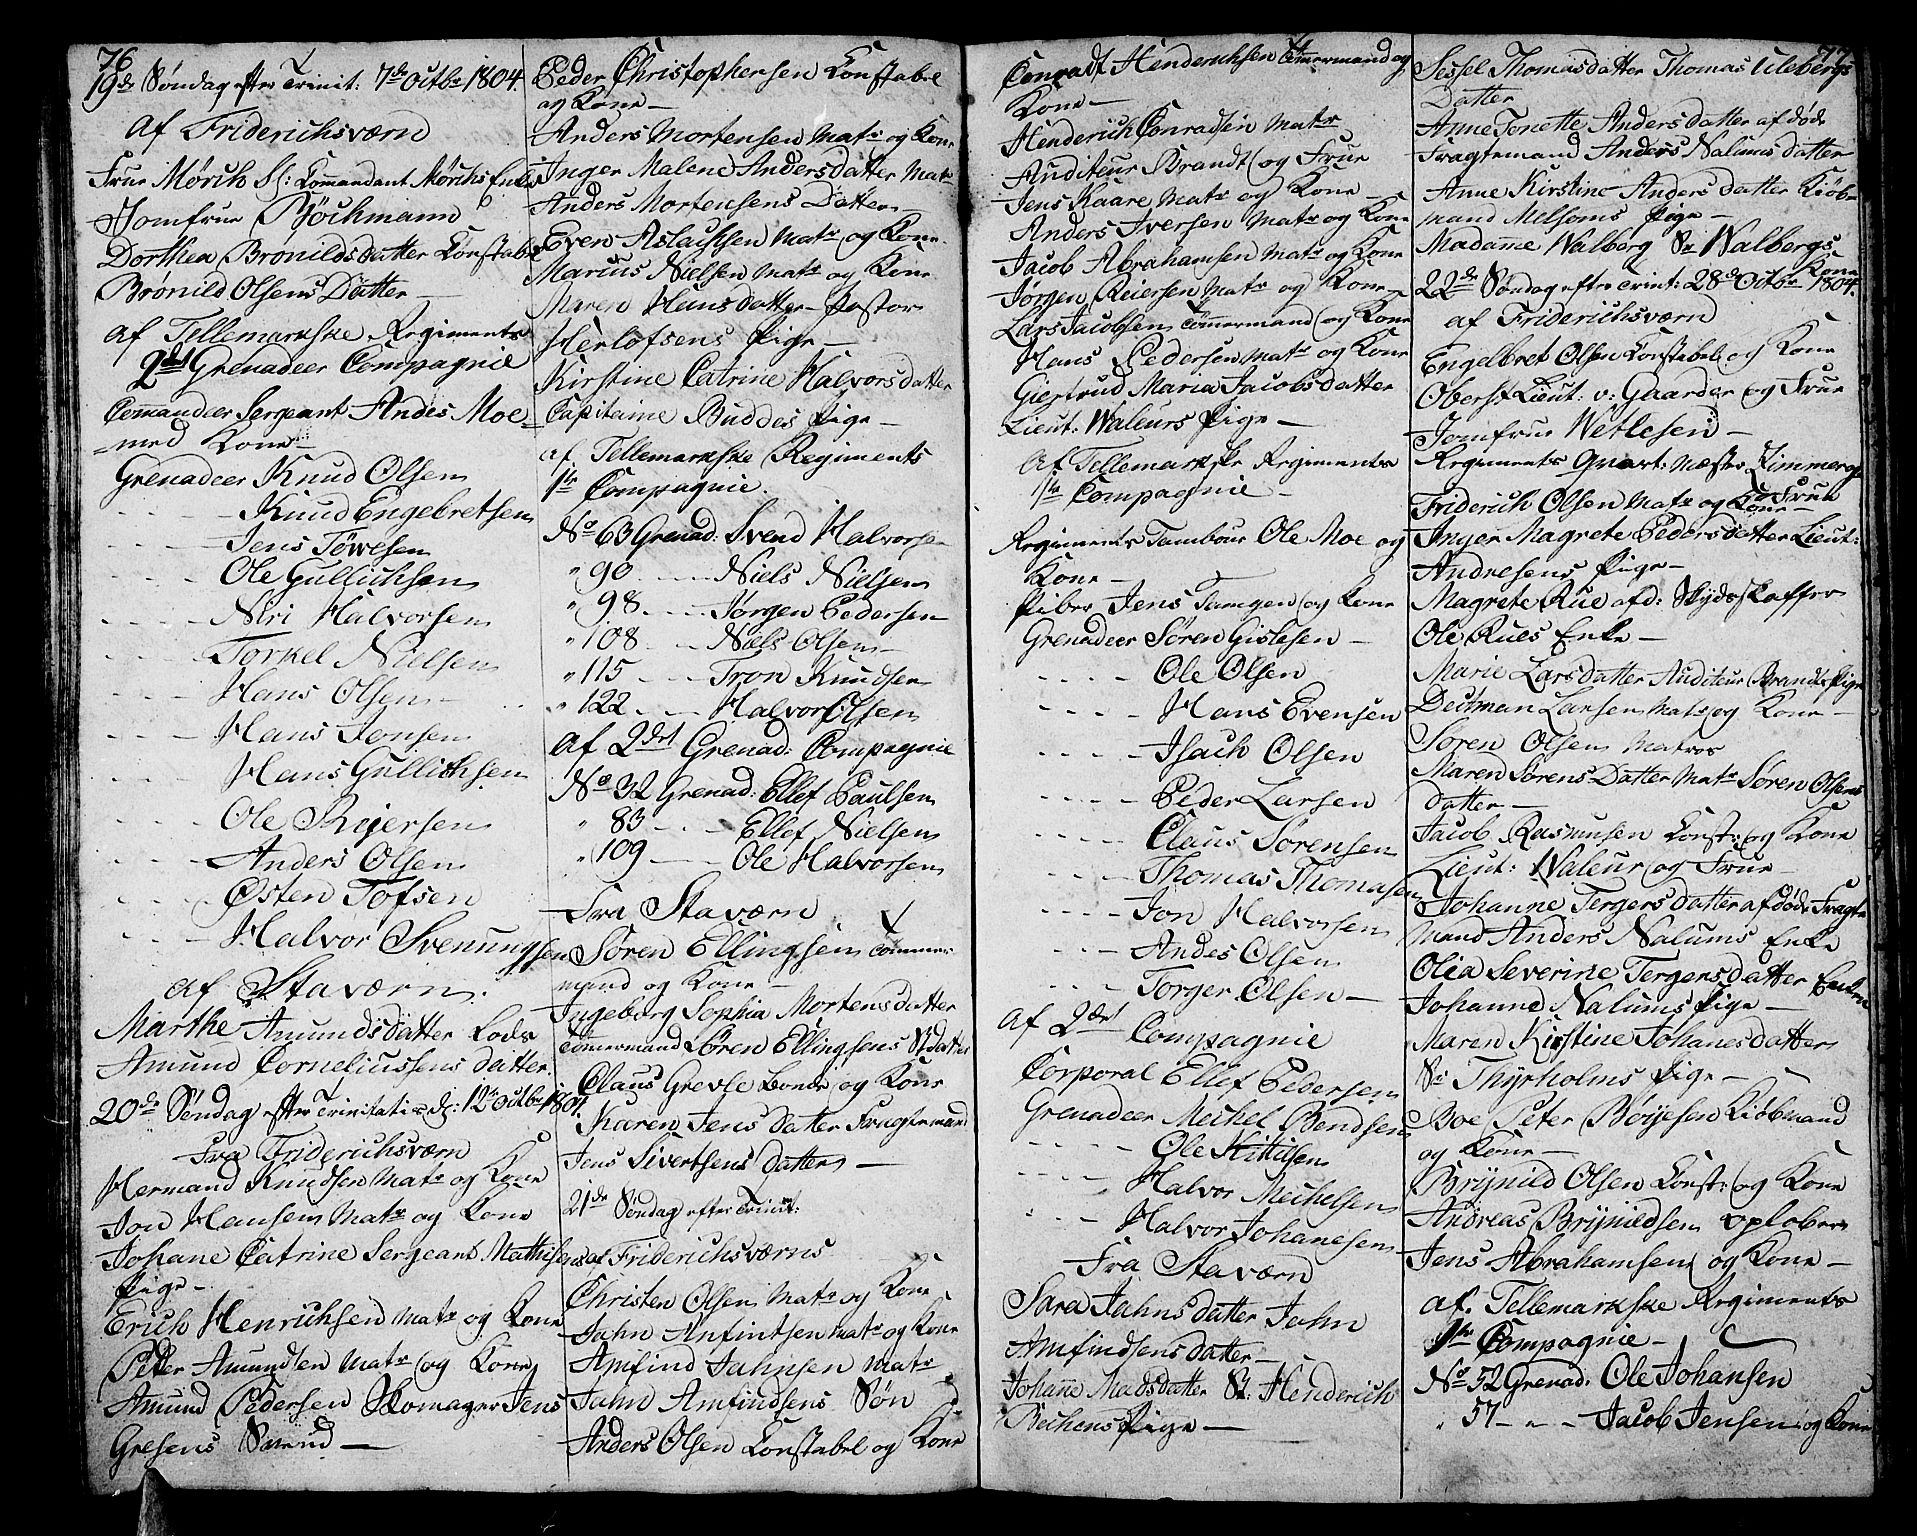 76
19de Søndag efter Trinit: 7de Octbr 1804.
Af Friderichsværn
Frue Mørch Sl: Commandant Mørchs Enke
Jomfrue Bøchmann
Dorthea Brønildsdatter Constabel
Brønild Olsens Datter —
af Tellemarkske Regiments
2det Grenadeer Compagnie
Commandeer Sergeant Andes Moe
med Kone —
Grenadeer Knud Olsen
- - - - Knud Engebretsen
- - - - Jens Tøwesen
- - - - Ole Gullichsen
- - - - Niri Halvorsen
- - - - Torkel Nielsen
- - - - Hans Olsen —
- - - - Hans Jonsen
- - - - Hans Gullichsen
- - - - Ole Reiersen
- - - - Anders Olsen
- - - - Østen Tofsen
- - - - Halvor Svenungsen
af Staværn.
Marthe Amundsdatter Lods
Amund Corneliussens datter.
20de Søndag efter Trinitatis d: 12te Octbr 1804.
Fra Friderichsværn
Hermand Knudsen Matr og Kone
Jon Hansen Matr og Kone
Johane Catrine Sergeant Mathisens
Pige —
Erich Henrichsen Matr og Kone
Peter Amundsen Matr og Kone
Amund Pedersen Skomager Jens
Gresens Svend —
Peder Christophersen Constabel
og Kone —
Anders Mortensen Matr og Kone
Inger Malene Andersdatter Matr
Anders Mortensens Datter —
Even Aslachsen Matr og Kone.
Marcus Nielsen Matr og Kone
Maren Hansdatter Pastor
Herlofsens Pige —
Kirstine Catrine Halvorsdatter
Capitaine Buddes Pige —
af Tellemarkske Regiments
1te Compagnie.
No 63 Grenad: Svend Halvorsen
" 90 - - - Niels Nielsen
" 98 - - - Jørgen Pedersen
" 108 - - - Niels Olsen —
" 115 - - - Tron Knudsen
" 122 - - - Halvor Olsen
af 2det Grenad: Compagnie
No 32 Grenad: Ellef Paulsen
" 83 - - - Ellef Nielsen
" 109 - - - Ole Halvorsen
Fra Staværn
Søren Ellingsen Tømmer
mand og Kone —
Ingeborg Sophia Mortensdatter
Tømmermand Søren Ellingsens St:datter
Claus Grevle Bonde og Kone
Karen Jens datter Fragtemand
Jens Sivertsens datter —
21de Søndag efter Trinit:
af Friderichsværns
Christen Olsen Matr og Kone
Jahn Anfintsen Matr og Kone
Amfind Jahnsen Matr
Jahn Amfindsens Søn
Anders Olsen Constabel og Kone
Conradt Henderichsen Tømmermand og
Kone —
Henderich Conradsen Matr
Auditeur Brandt og Frue
Jens Kaare Matr og Kone —
Anders Iversen Matr og Kone
Jacob Abrahamsen Matr og Kone
Jørgen Reiersen Matr og Kone
Lars Jacobsen Tømmermand og Kone
Hans Pedersen Matr og Kone
Giertrud Maria Jacobsdatter
Lieut: Waleurs Pige —
Af Tellemarkske Regiments
1te Compagnie —
Regiments Tambour Ole Moe og
Kone —
Piber Jens Tamgen og Kone
Grenadeer Søren Gislesen —
- - - - Ole Olsen
- - - - Hans Evensen
- - - - Isach Olsen
- - - - Peder Larsen
- - - - Claus Sørensen
- - - - Thomas Thomasen
- - - - Jon Halvorsen
- - - - Andes Olsen
- - - - Torger Olsen —
Af 2det Compagnie
Corporal Ellef Pedersen
Grenadeer Mechel Bendsen
- - - - Ole Kittilsen
- - - - Halvor Mechelsen
- - - - Halvor Johanesen
Fra Staværn
Sara Jahnsdatter Jahn
Amfindsens datter —
Johanne Madsdatter St: Henderich
Bechens Pige —
77
Sessel Thomasdatter Thomas Ulebergs
Datter
Anne Tonette Andersdatter afdøde
Fragtemand Anders Nalums datter
Anne Kirstine Andersdatter Kiøb
mand Melsoms Pige —
Madamme Walberg Sr Walbergs
Kone
22de Søndag efter Trinit: 28de Octbr 1804.
af Friderichsværn
Engelbret Olsen Constabel og Kone
Oberst Lieut: v: Gaarder og Frue
Jomfrue Wetlesen —
Regiments Qvart: Mæster Zimmer og
Frue
Friderich Olsen Matr og Kone —
Inger Magrete Pedersdatter Lieut:
Andresens Pige —
Magrete Rue afd: Skydsskaffer
Ole Rues Enke —
Marie Larsdatter Auditeur Brandts Pige
Deitman Larsen Matr og Kone —
Søren Olsen Matros
Maren Sørens Datter Matr Søren Olsens
datter —
Jacob Rasmusen Const: og Kone
Lieut: Waleur og Frue —
Johanne Tergersdatter afdøde Fragte
mand Anders Nalums Enke
Olea Severine Tergensdatter Enken
Johanne Nalums Pige —
Maren Kirstine Johanesdatter
Sr Thyrholms Pige —
Boe Peter Bøyesen Kiøbmand
og Kone —
Brynild Olsen Const: og Kone
Andreas Brynildsen oplober
Jens Abrahamsen og Kone —
af Tellemarkske Regiments
1te Compagnie —
No 52 Grenad: Ole Johansen
" 57 - - - Jacob Jensen og Kone